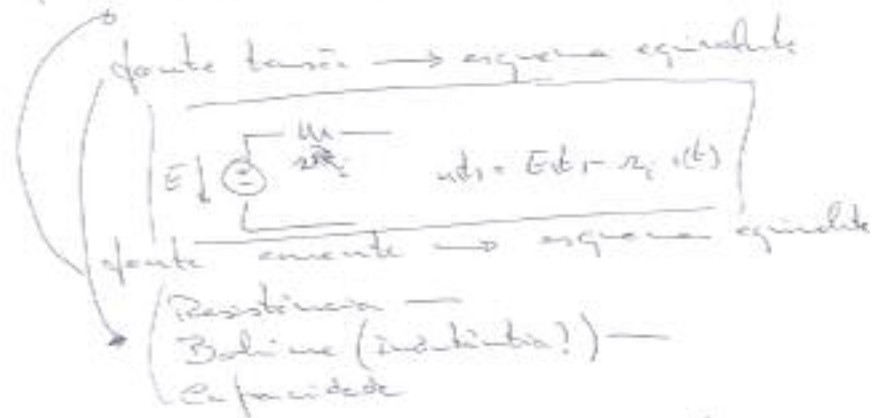 fonte tensão → esquema equivalente
E ↓ r_i u(t) = E(t) - r_i i(t)
fonte corrente → esquema equivalente
Resistência —
Bobine (indutância?) —
Capacidade